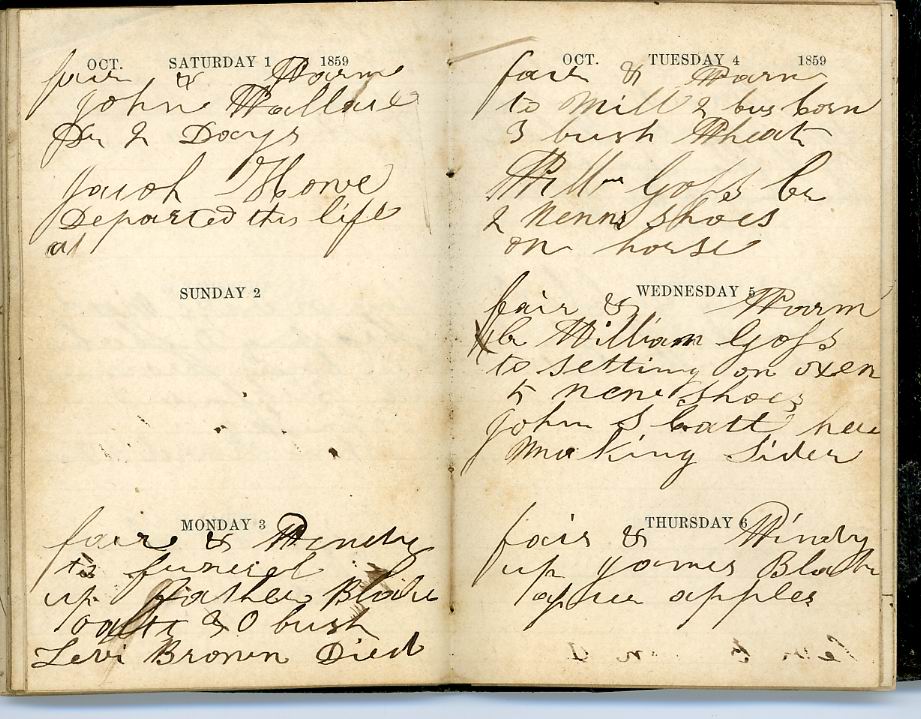 OCT. SATURDAY 1 1859
fair & Warm
John Wallace
Dr 2 Days
Jacob Howe
Departed this life
at
SUNDAY 2
MONDAY 3
fair & Windy
to funerel
up father Blake
oats 30 bush
Levi Brown Died
OCT. TUESDAY 4 1859
fair & Warm
to Mill 2 bus corn
3 bush Wheat
Willm Goss Cr
2 New shoes
on horse
WEDNESDAY 5
fair & Warm
Cr William Goss
to setting on oxen
5 new shoes
John S Catt here
Making Sider
THURSDAY 6
fair & Windy
up James Blake
apples